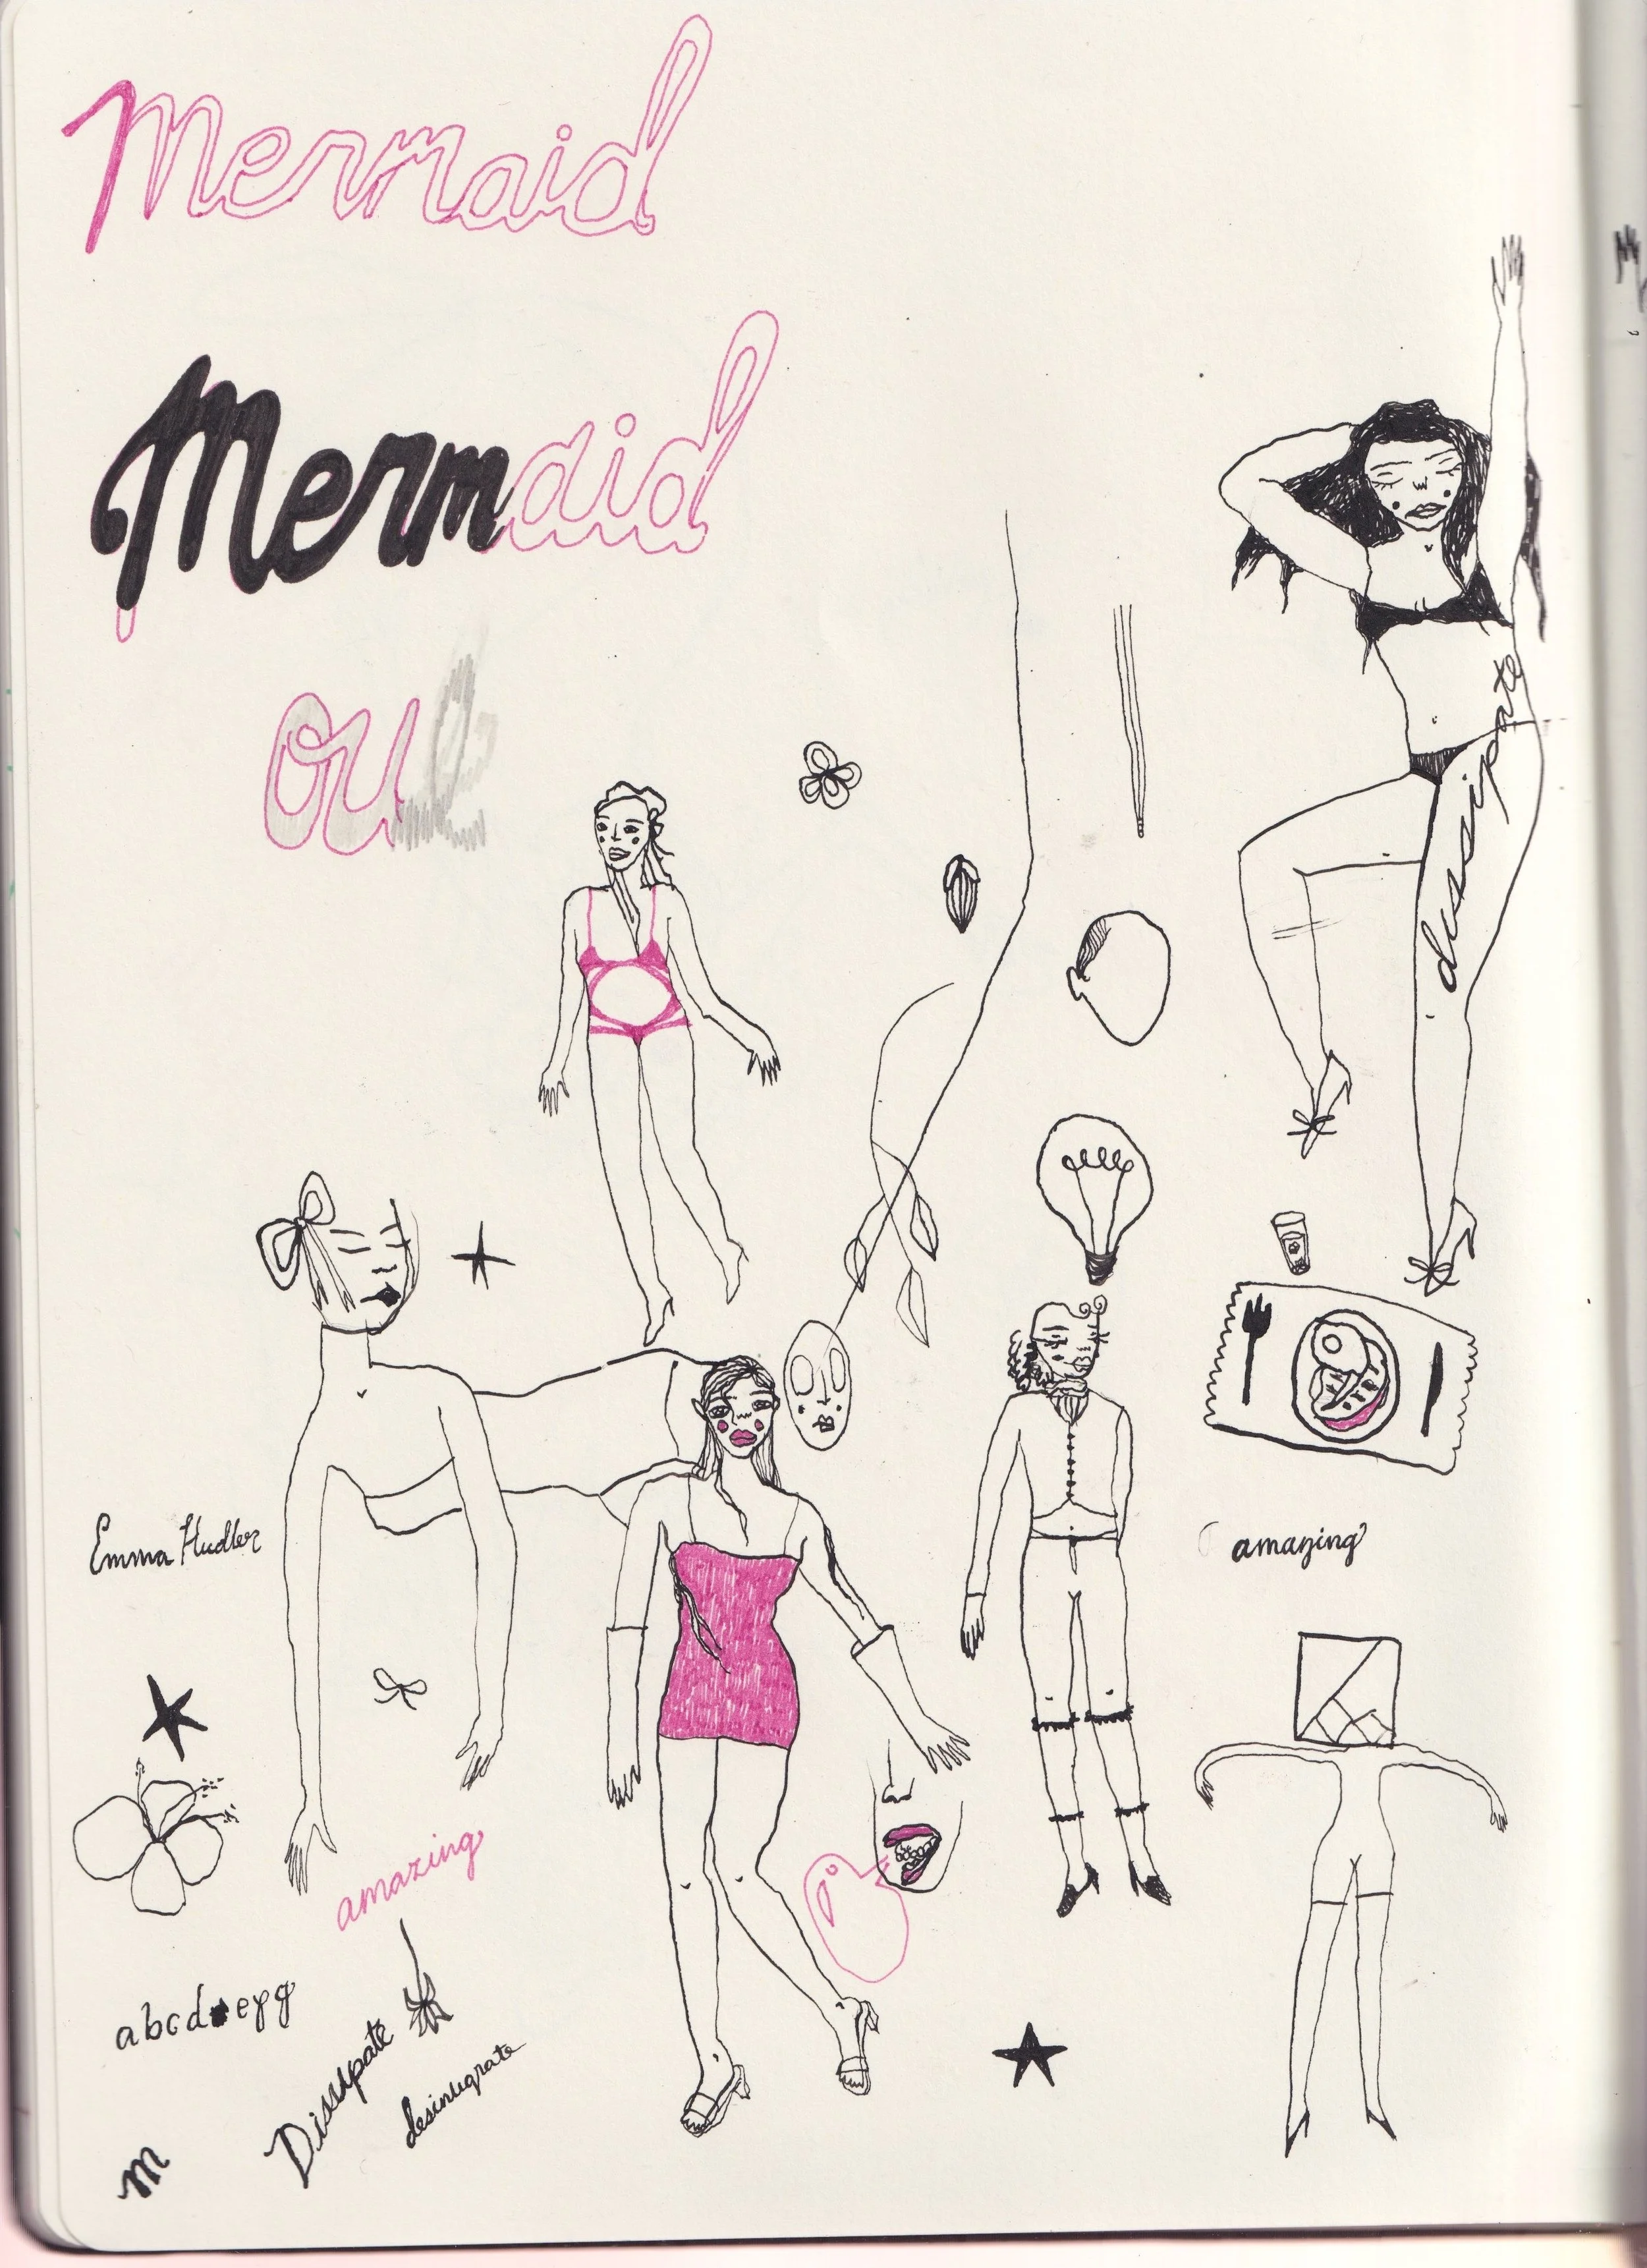 Mermaid
Mermaid
ou
dissipate
Emma Hudler
amazing
amazing
abcd efg
Dissipate
desintegrate
m